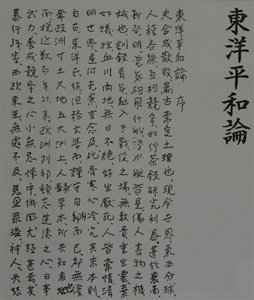 東洋平和論
東洋平和論 序
夫合成散敗萬古常定之理也現今世界東西分球
人種各殊互相競爭如行茶飯研究利器甚於農商
新發明電氣砲飛行船浸水艇皆是傷人害物之機
械也訓鍊青年驅入于戰役之場無數貴重生靈棄
如犧牲血川肉地無日不絶好生厭死人皆常情清
明世界是何光景言念及此骨寒心冷究其末本則
自古東洋民族但務文學而謹守自邦而已都無侵
奪歐洲寸土尺地五大洲上人獸草木所共知者也
而挽近數百年以來歐洲列邦頓忘道德之心日事
武力養成競爭之心小無忌憚中俄國尤極甚焉其
暴行殘害西歐東亞無處不及惡盈罪溢神人共怒